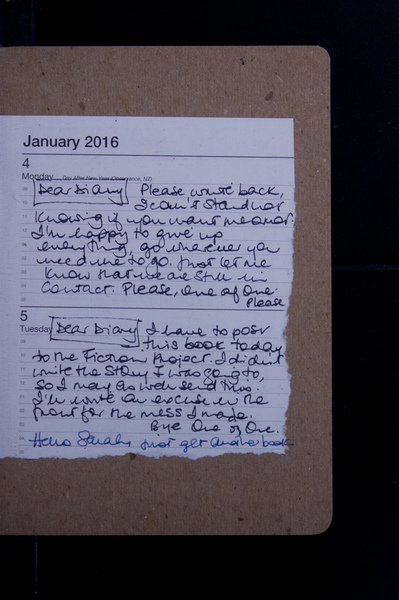 January 2016
4
Monday Day After New Year (Observance, NZ)
Dear Diary Please write back,
I can't stand not
knowing if you want me or not.
I'm happy to give up
everything, go wherever you
need me to go. Just let me
know that we are still in
contact. Please, One of One
Please
5
Tuesday Dear Diary I have to post
this book today
to the Fiction Project. I didn't
write the story I was going to,
so I may as well send this.
I'll write an excuse in the
front for the mess I made.
Bye One of One.
Hello Sarah, just get another book